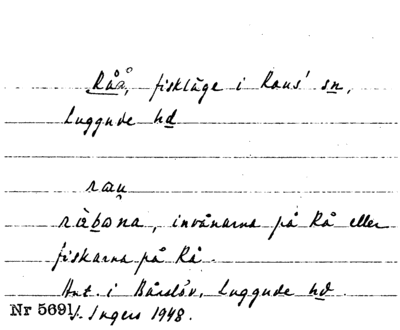 Råå, fiskläge i Raus' sn,
Luggude hd
rau̯
ràbɷna, invånarna på Rå eller
fiskarna på Rå.
Ant. i Bårslöv, Luggude hd.
Nr 5691 I. Ingers 1948.